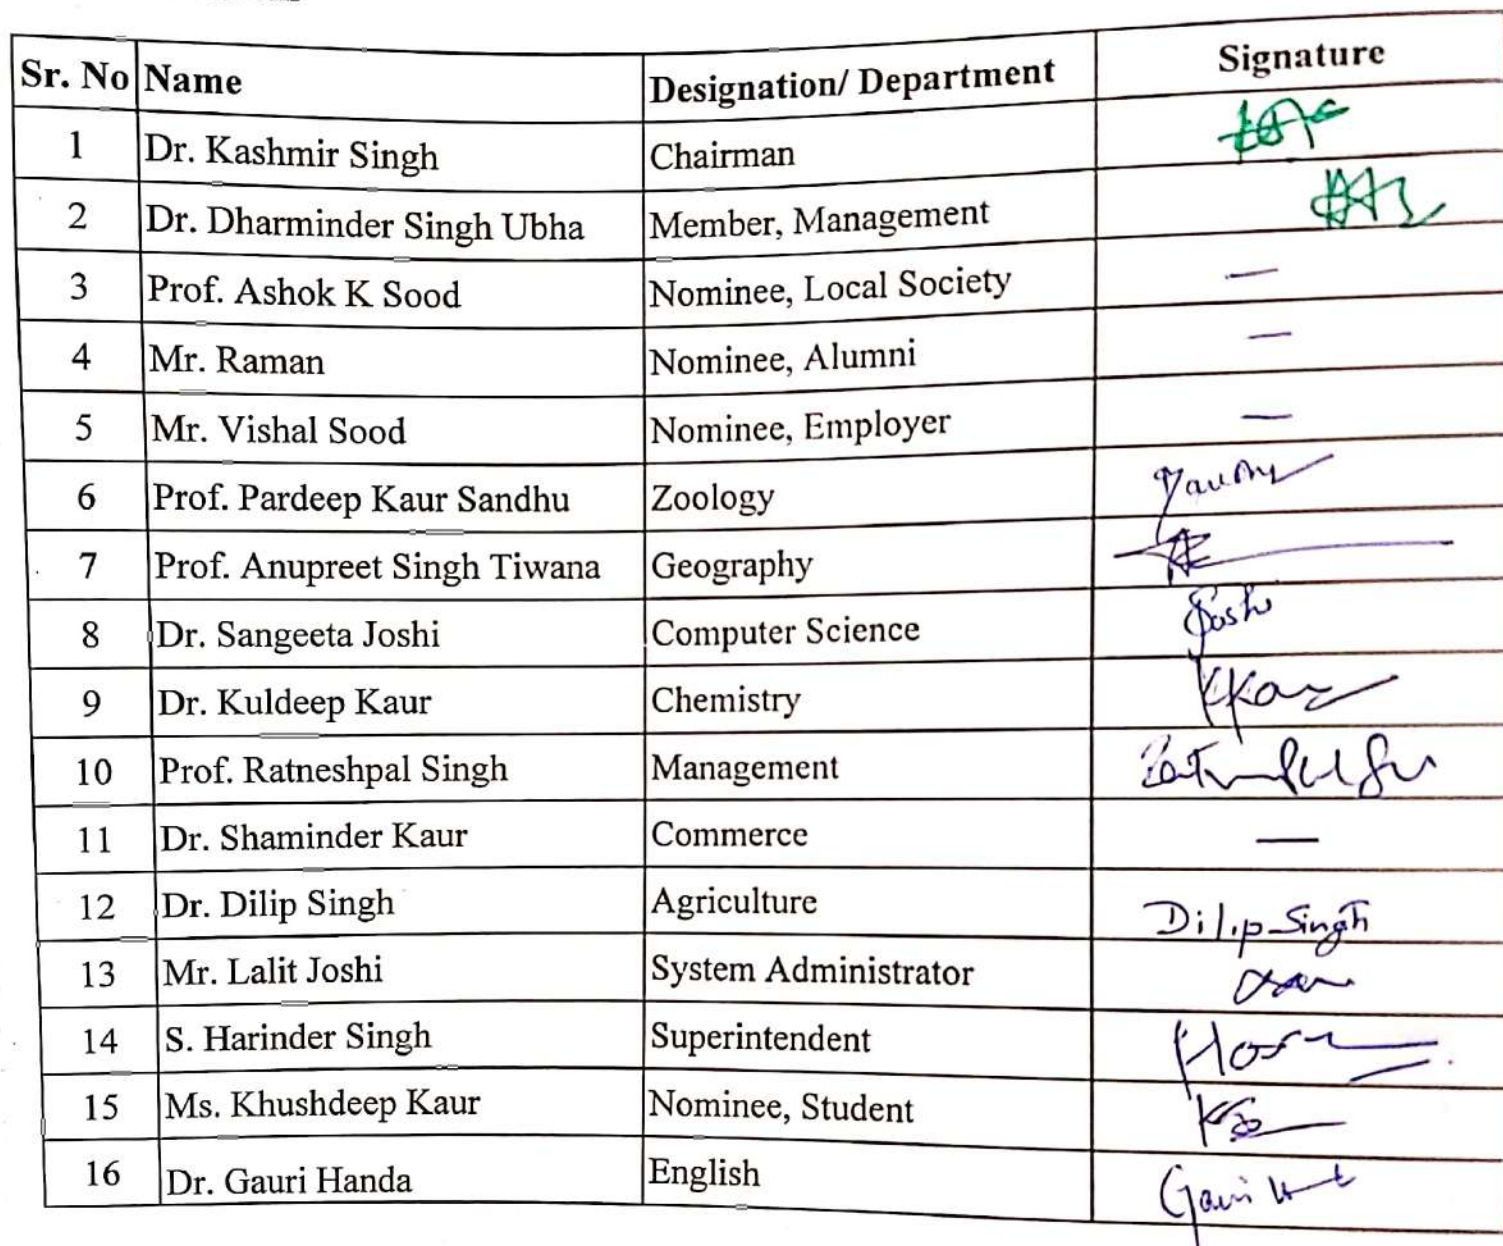 Sr. No Name Designation/ Department Signature
1 Dr. Kashmir Singh Chairman
2 Dr. Dharminder Singh Ubha Member, Management
3 Prof. Ashok K Sood Nominee, Local Society —
4 Mr. Raman Nominee, Alumni —
5 Mr. Vishal Sood Nominee, Employer —
6 Prof. Pardeep Kaur Sandhu Zoology
7 Prof. Anupreet Singh Tiwana Geography
8 Dr. Sangeeta Joshi Computer Science
9 Dr. Kuldeep Kaur Chemistry
10 Prof. Ratneshpal Singh Management
11 Dr. Shaminder Kaur Commerce —
12 Dr. Dilip Singh Agriculture Dilip Singh
13 Mr. Lalit Joshi System Administrator
14 S. Harinder Singh Superintendent
15 Ms. Khushdeep Kaur Nominee, Student
16 Dr. Gauri Handa English